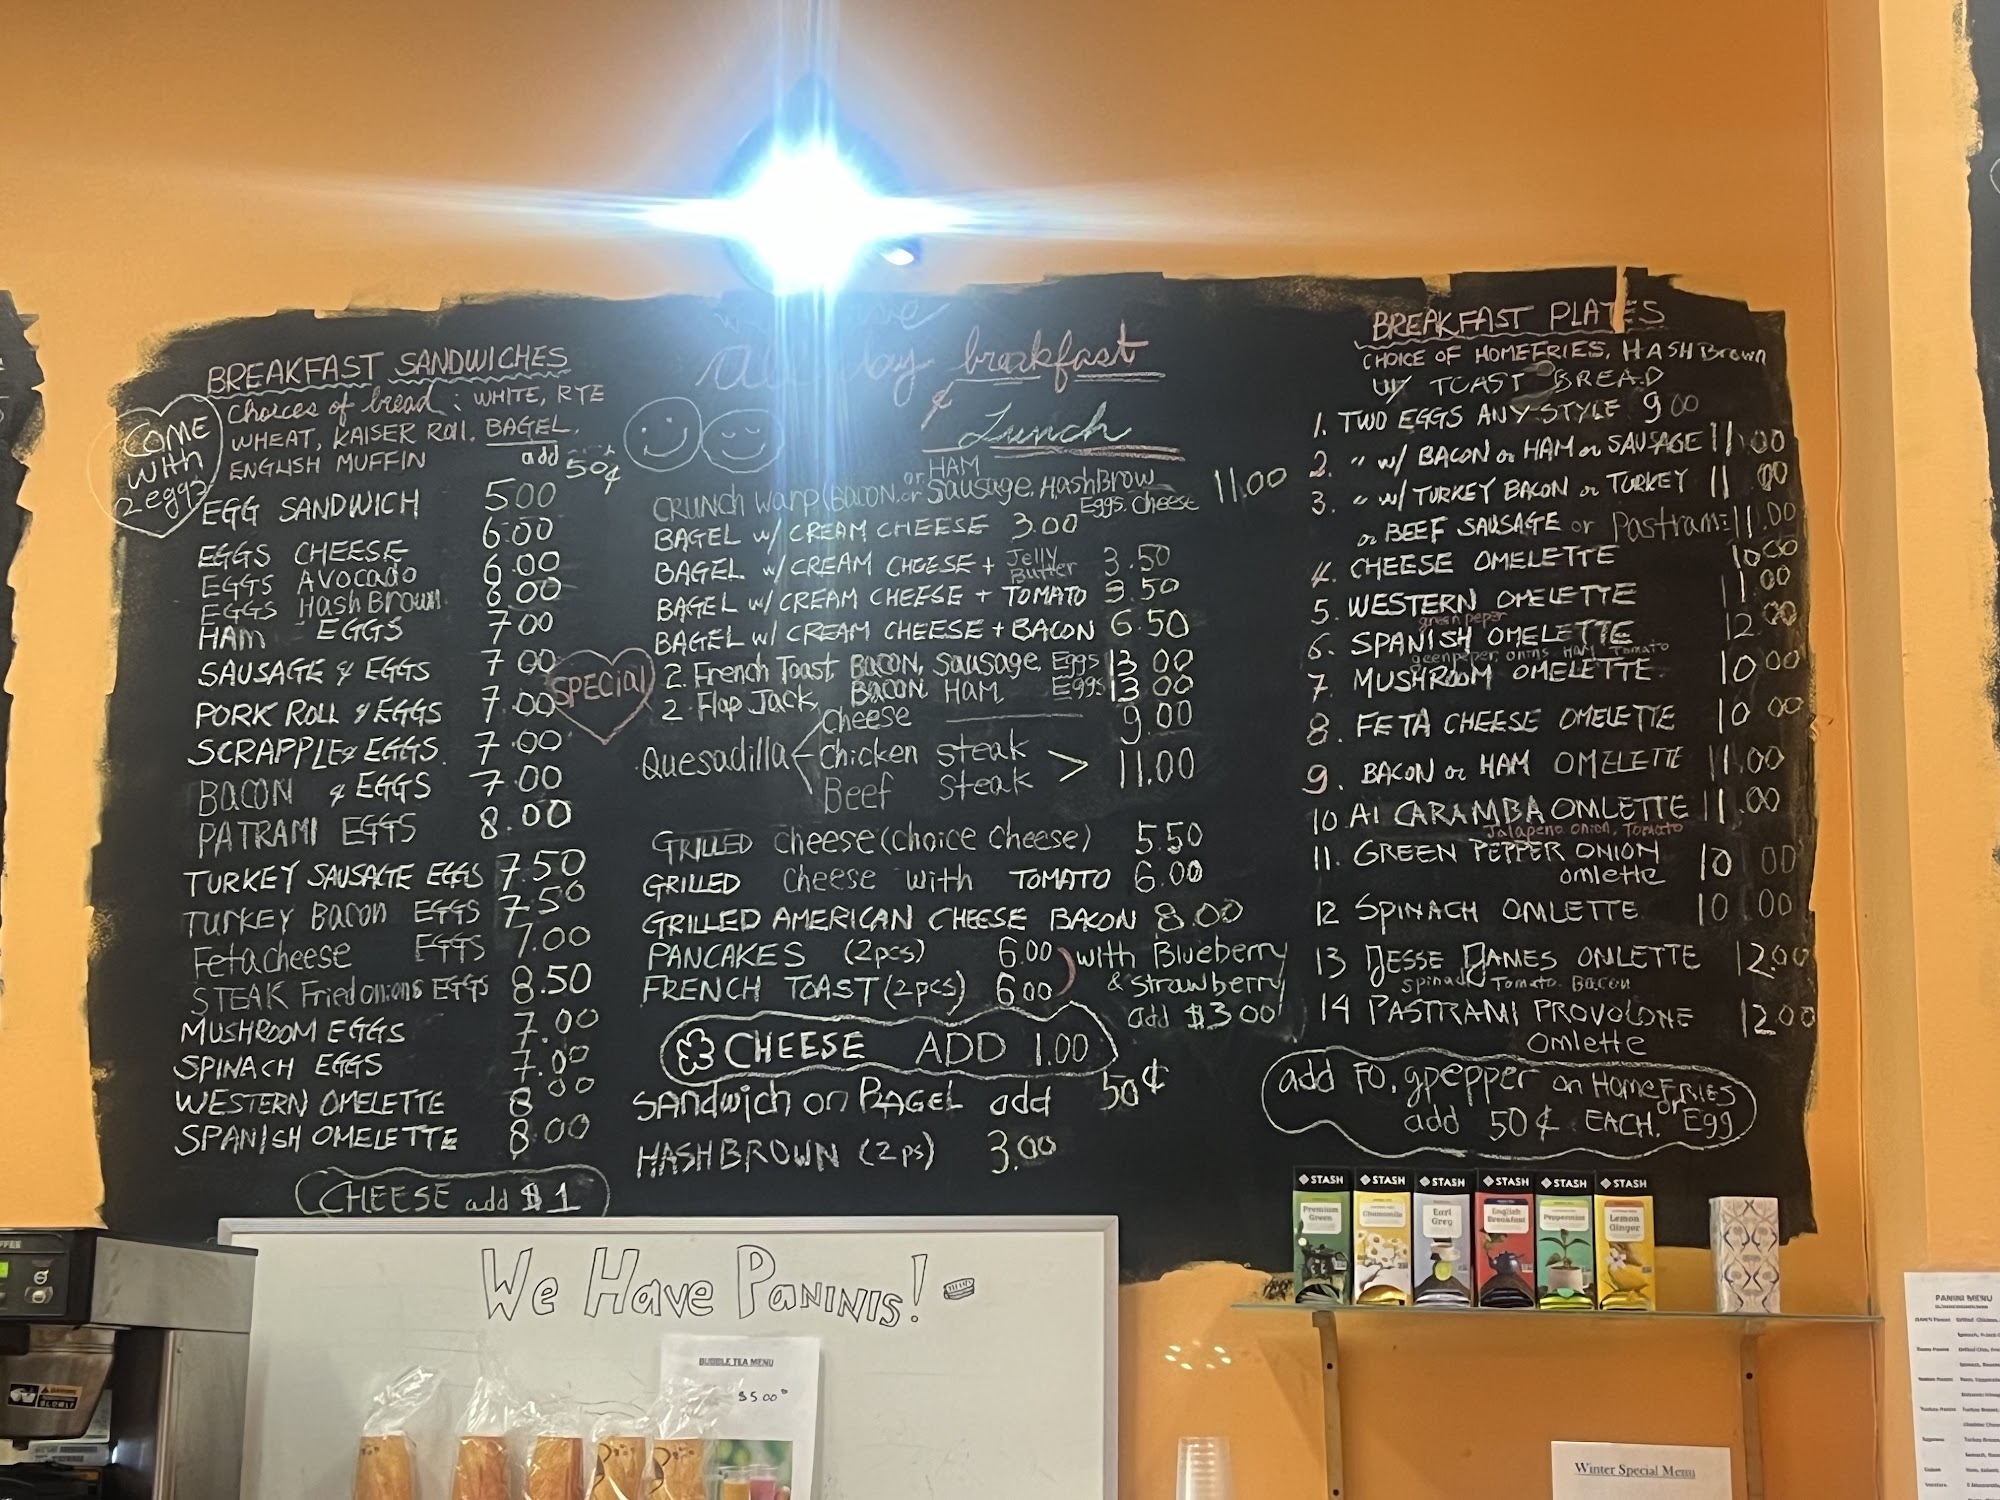 BREAKFAST SANDWICHES
COME
with
2 eggs
Choices of bread: WHITE, RYE
WHEAT, KAISER Roll. BAGEL.
ENGLISH MUFFIN add 50¢
EGG SANDWICH 5.00
EGGS CHEESE 6.00
EGGS AVOCADO 6.00
EGGS HashBrown 6.00
HAM EGGS 7.00
SAUSAGE & EGGS 7.00
PORK ROLL & EGGS 7.00
SCRAPPLE & EGGS. 7.00
BACON & EGGS 7.00
PATRAMI EGGS 8.00
TURKEY SAUSAGE EGGS 7.50
TURKEY Bacon EGGS 7.50
Feta cheese EGGS 7.00
STEAK Fried onions EGGS 8.50
MUSHROOM EGGS 7.00
SPINACH EGGS 7.00
WESTERN OMELETTE 8.00
SPANISH OMELETTE 8.00
CHEESE add $1
All day breakfast
& Lunch
or HAM
CRUNCH Warp (Bacon or Sausage, HashBrow 11.00
Eggs. Cheese
BAGEL w/ CREAM CHEESE 3.00
BAGEL w/ CREAM CHEESE + Jelly 3.50
Butter
BAGEL w/ CREAM CHEESE + TOMATO 3.50
BAGEL w/ CREAM CHEESE + BACON 6.50
SPECial
2. French Toast, Bacon, Sausage, Eggs 13.00
2. Flap Jack, Bacon Ham, Eggs 13.00
Cheese 9.00
Quesadilla < Chicken steak > 11.00
Beef steak
GRILLED Cheese (choice cheese) 5.50
GRILLED cheese with TOMATO 6.00
GRILLED AMERICAN CHEESE BACON 8.00
PANCAKES (2pcs) 6.00
FRENCH TOAST (2pcs) 6.00
with Blueberry
& Strawberry
add $3.00
CHEESE ADD 1.00
SANdwich on BAGEL add 50¢
HASHBROWN (2ps) 3.00
BREAKFAST PLATES
CHOICE OF HOMEFRIES, HASHBrown
W/ TOAST BREAD
1. TWO EGGS ANY STYLE 9.00
2. " w/ BACON or HAM or SAUSAGE 11.00
3. " w/ TURKEY BACON or TURKEY 11.00
or BEEF SAUSAGE or Pastrami 11.00
4. CHEESE OMELETTE 10.00
5. WESTERN OMELETTE 11.00
green peper
6. SPANISH OMELETTE 12.00
geenpeper, onins, HAM, Tomato
7. MUSHROOM OMELETTE 10.00
8. FETA CHEESE OMELETTE 10.00
9. BACON or HAM OMELETTE 11.00
10 AI CARAMBA OMLETTE 11.00
Jalapeno onion, Tomato
11. GREEN PEPPER ONION 10.00
omlette
12 SPINACH OMLETTE 10.00
13 JESSE JAMES OMLETTE 12.00
spinach Tomato. Bacon
14 PASTRAMI PROVOLONE 12.00
omlette
add FO, gpepper on HOMEFRIES
or Egg
add 50¢ EACH.
STASH STASH STASH STASH STASH STASH
Premium Green
Chamomile
Earl Grey
English Breakfast
Peppermint
Lemon Ginger
We Have Paninis!
BUBBLE TEA MENU
$5.00
Winter Special Menu
PANINI MENU